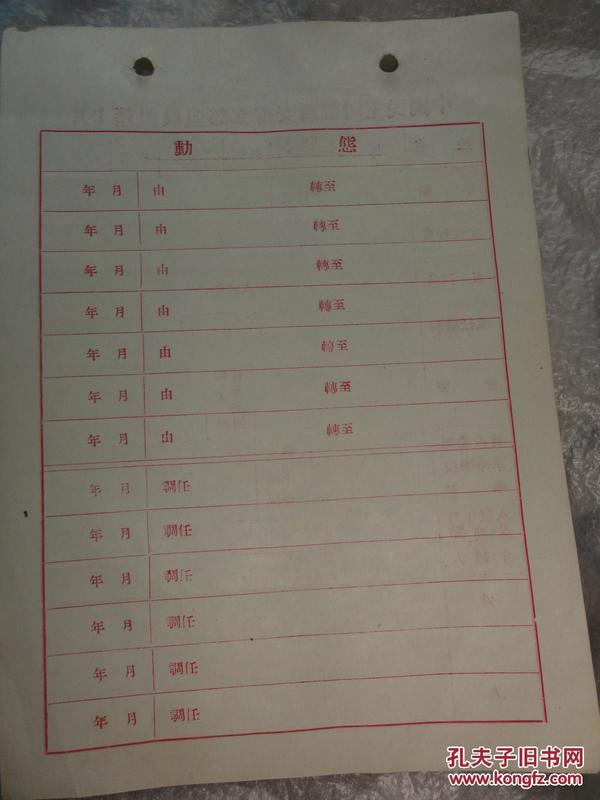 動 態
年 月 由 轉至
年 月 由 轉至
年 月 由 轉至
年 月 由 轉至
年 月 由 轉至
年 月 由 轉至
年 月 由 轉至
年 月 調任
年 月 調任
年 月 調任
年 月 調任
年 月 調任
年 月 調任
孔夫子旧书网
www.kongfz.com